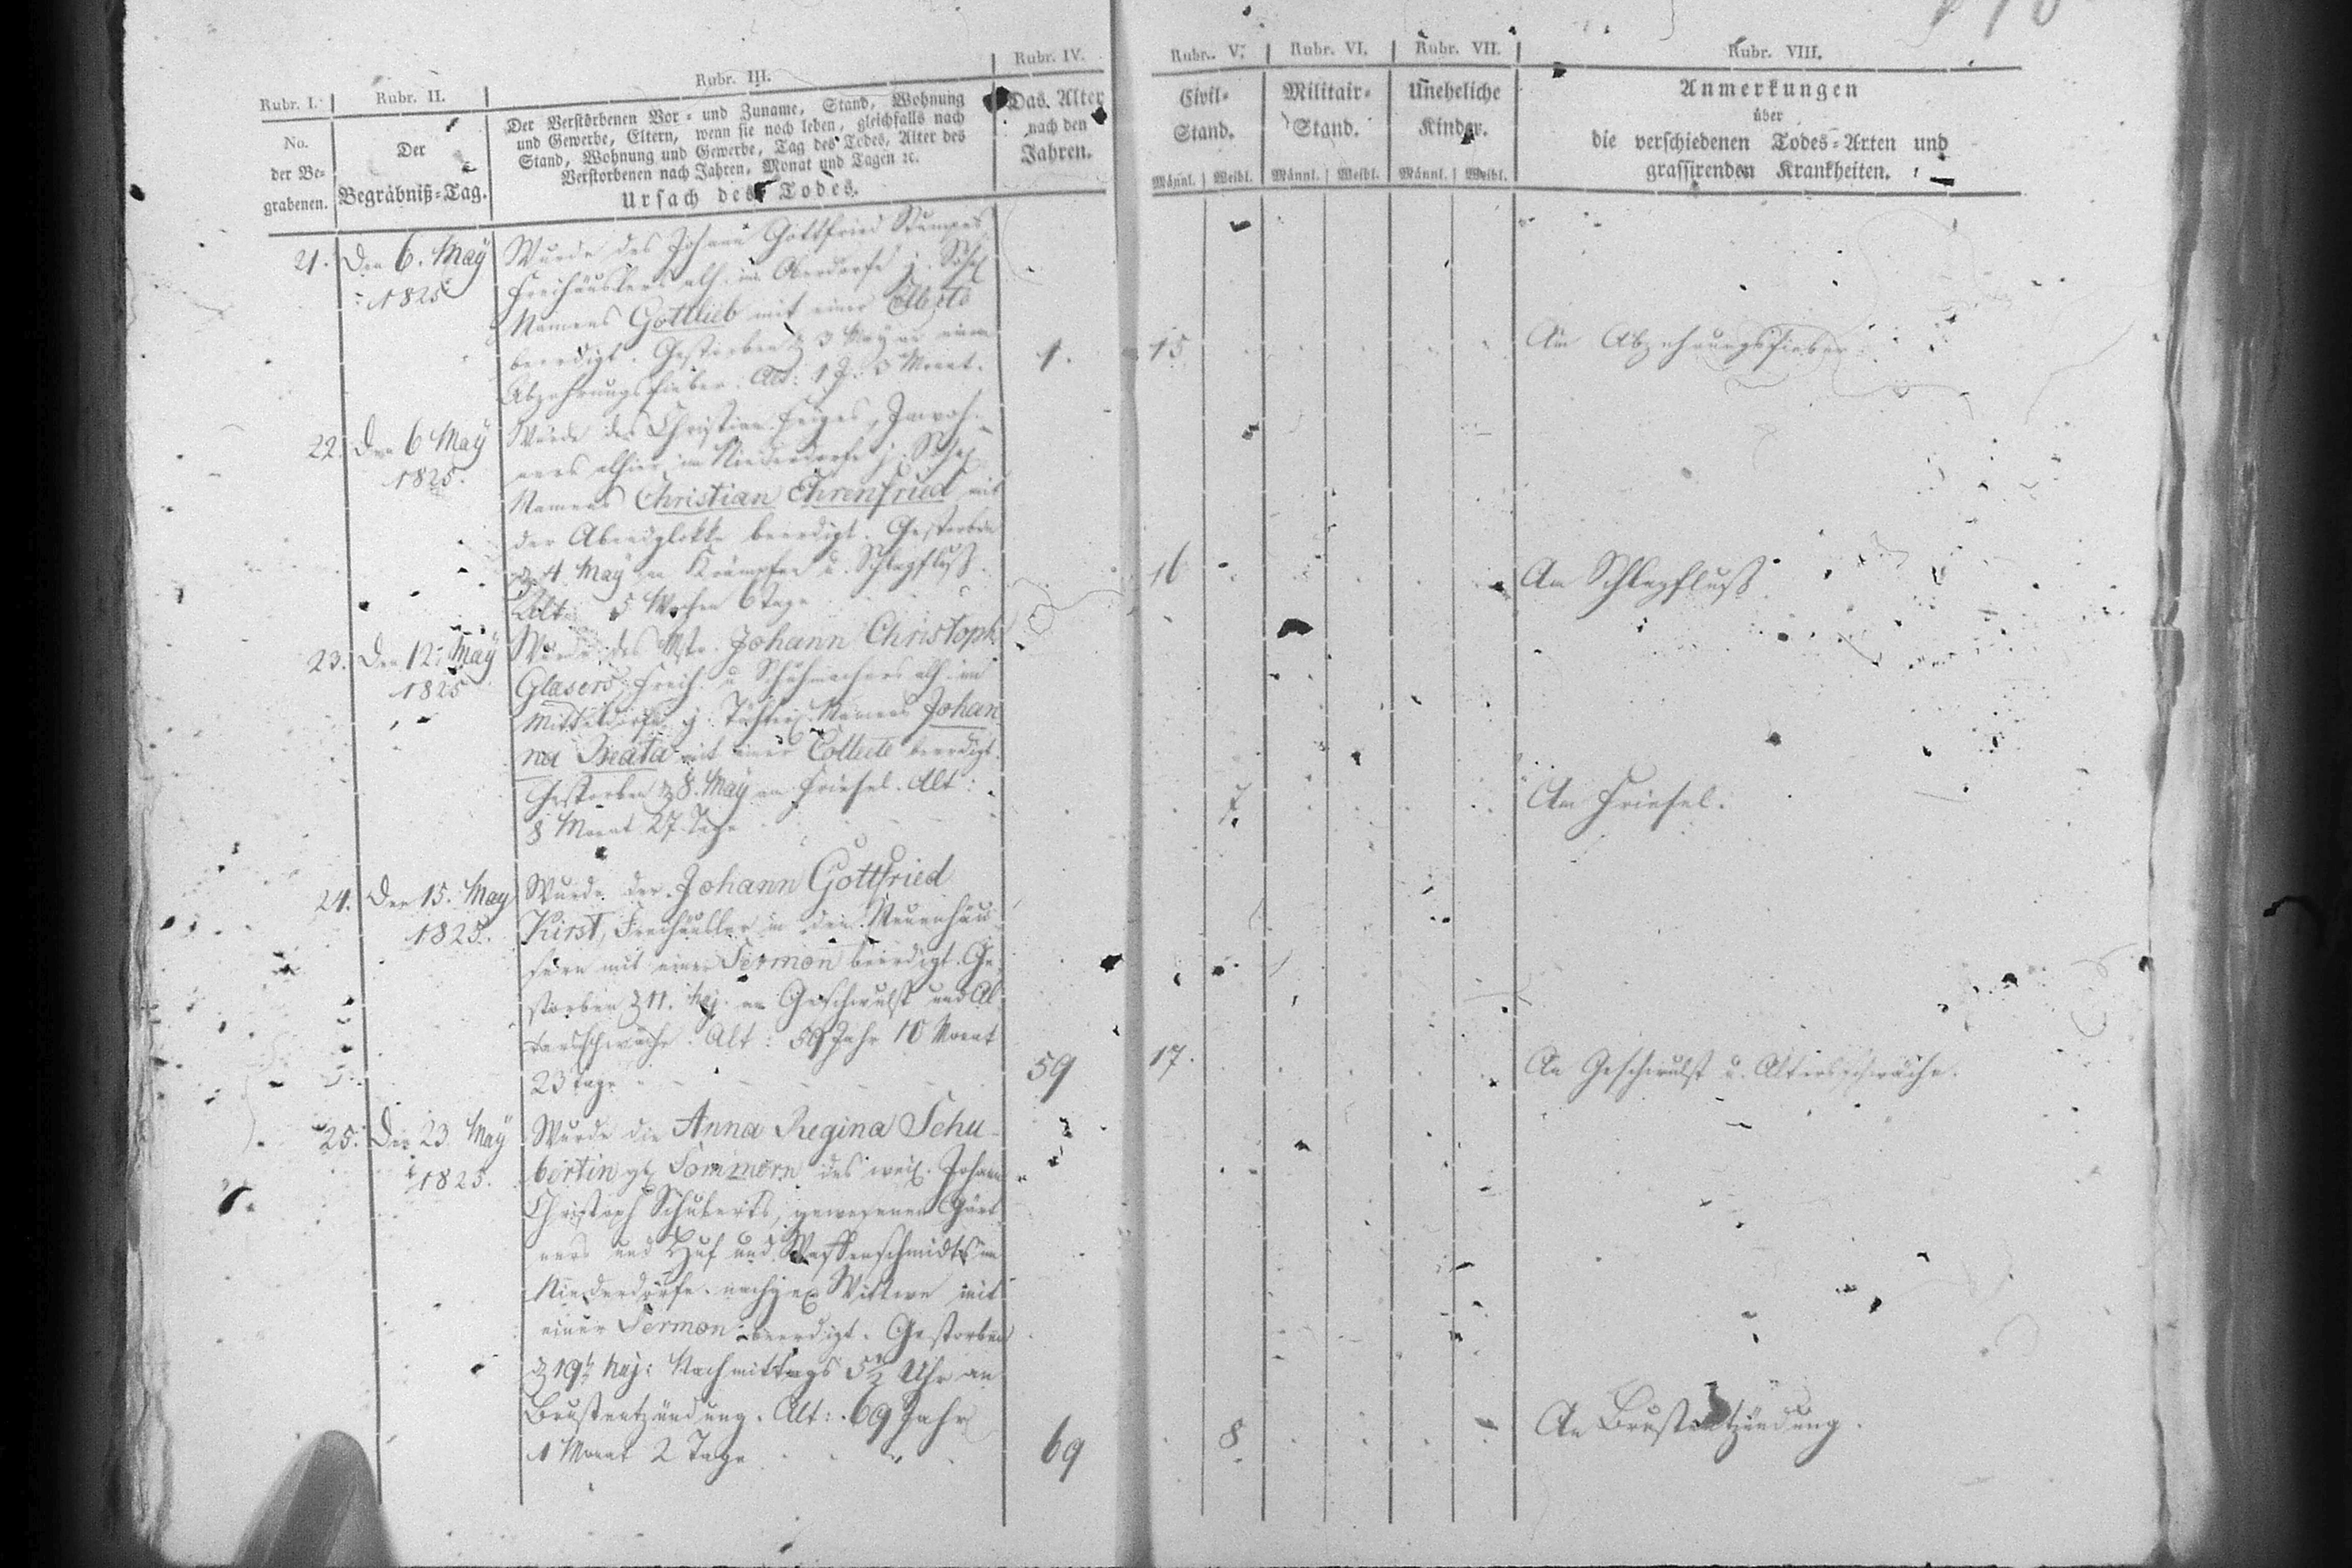 Rubr. I.
Rubr. II.
Rubr. III.
Rubr. IV.
Rubr. V.
Rubr. VI.
Rubr. VII.
Rubr. VIII.
No.
der Be-
grabenen.
Der
Begräbniß-Tag.
Der Verstorbenen Vor- und Zuname, Stand, Wohnung
und Gewerbe, Eltern, wenn sie noch leben, gleichfalls nach
Stand, Wohnung und Gewerbe, Tag des Todes, Alter des
Verstorbenen nach Jahren, Monat und Tagen ꝛc.
Ursach des Todes.
Das Alter
nach den
Jahren.
Civil-
Stand.
Männl. Weibl.
Militair-
Stand.
Männl. Weibl.
Uneheliche
Kinder.
Männl. Weibl.
Anmerkungen
über
die verschiedenen Todes-Arten und
grassirenden Krankheiten.
21. Den 6. May
1825
Wurde des Johann Gottfried
Freihäuslers alh. im Oberdorfe j. Söhnl.
Namens Gottlieb mit einer
beerdigt. Gestorben d. 3 May an einem
Abzehrungsfieber. Alt: 1 J. 3 Monat.
1. 15 Am Abzehrungsfieber
22. Den 6 May
1825.
Wurde des Christian Inwoh-
ners alhier im Niederdorfe j. Söhnl.
Namens Christian Ehrenfried mit
der Abendglokke beerdigt. Gestorben
d. 4 May an Krämpfen u. Schlagfluß.
Alt: 5 Wochen 6 Tage
16 Am Schlagfluß
23. Den 12. May
1825
Wurde des Mstr. Johann Christoph
Glasers, Freih. u. Schuhmachers alh. im
Mitteldorfe j. Töchterl. Namens Johan
na Beata mit einer Collecte beerdigt.
Gestorben d. 8. May an Friesel. Alt:
8 Monat 27 Tage
7. Am Friesel.
24. Den 15. May
1825.
Wurde der Johann Gottfried
Kirst, Freihäusler in den Neuenhäu-
sern mit einer Sermon beerdigt. Ge-
storben d. 11. huj. an Geschwulst und Al-
tersschwäche. Alt: 59 Jahr 10 Monat
23 Tage
59 17. An Geschwulst u. Altersschwäche.
25. Den 23. May
1825.
Wurde die Anna Regina Schu-
bertin geb. Sommern des weil. Johann
Christoph Schuberts, gewesenen Gärt
ners und Huf und Waffenschmidts im
Niederdorfe nachgel. Wittwe mit
einer Sermon beerdigt. Gestorben
d. 19. huj: Nachmittags 5½ Uhr an
Brustentzündung. Alt: 69 Jahr
1 Monat 2 Tage
69 8. An Brustentzündung.